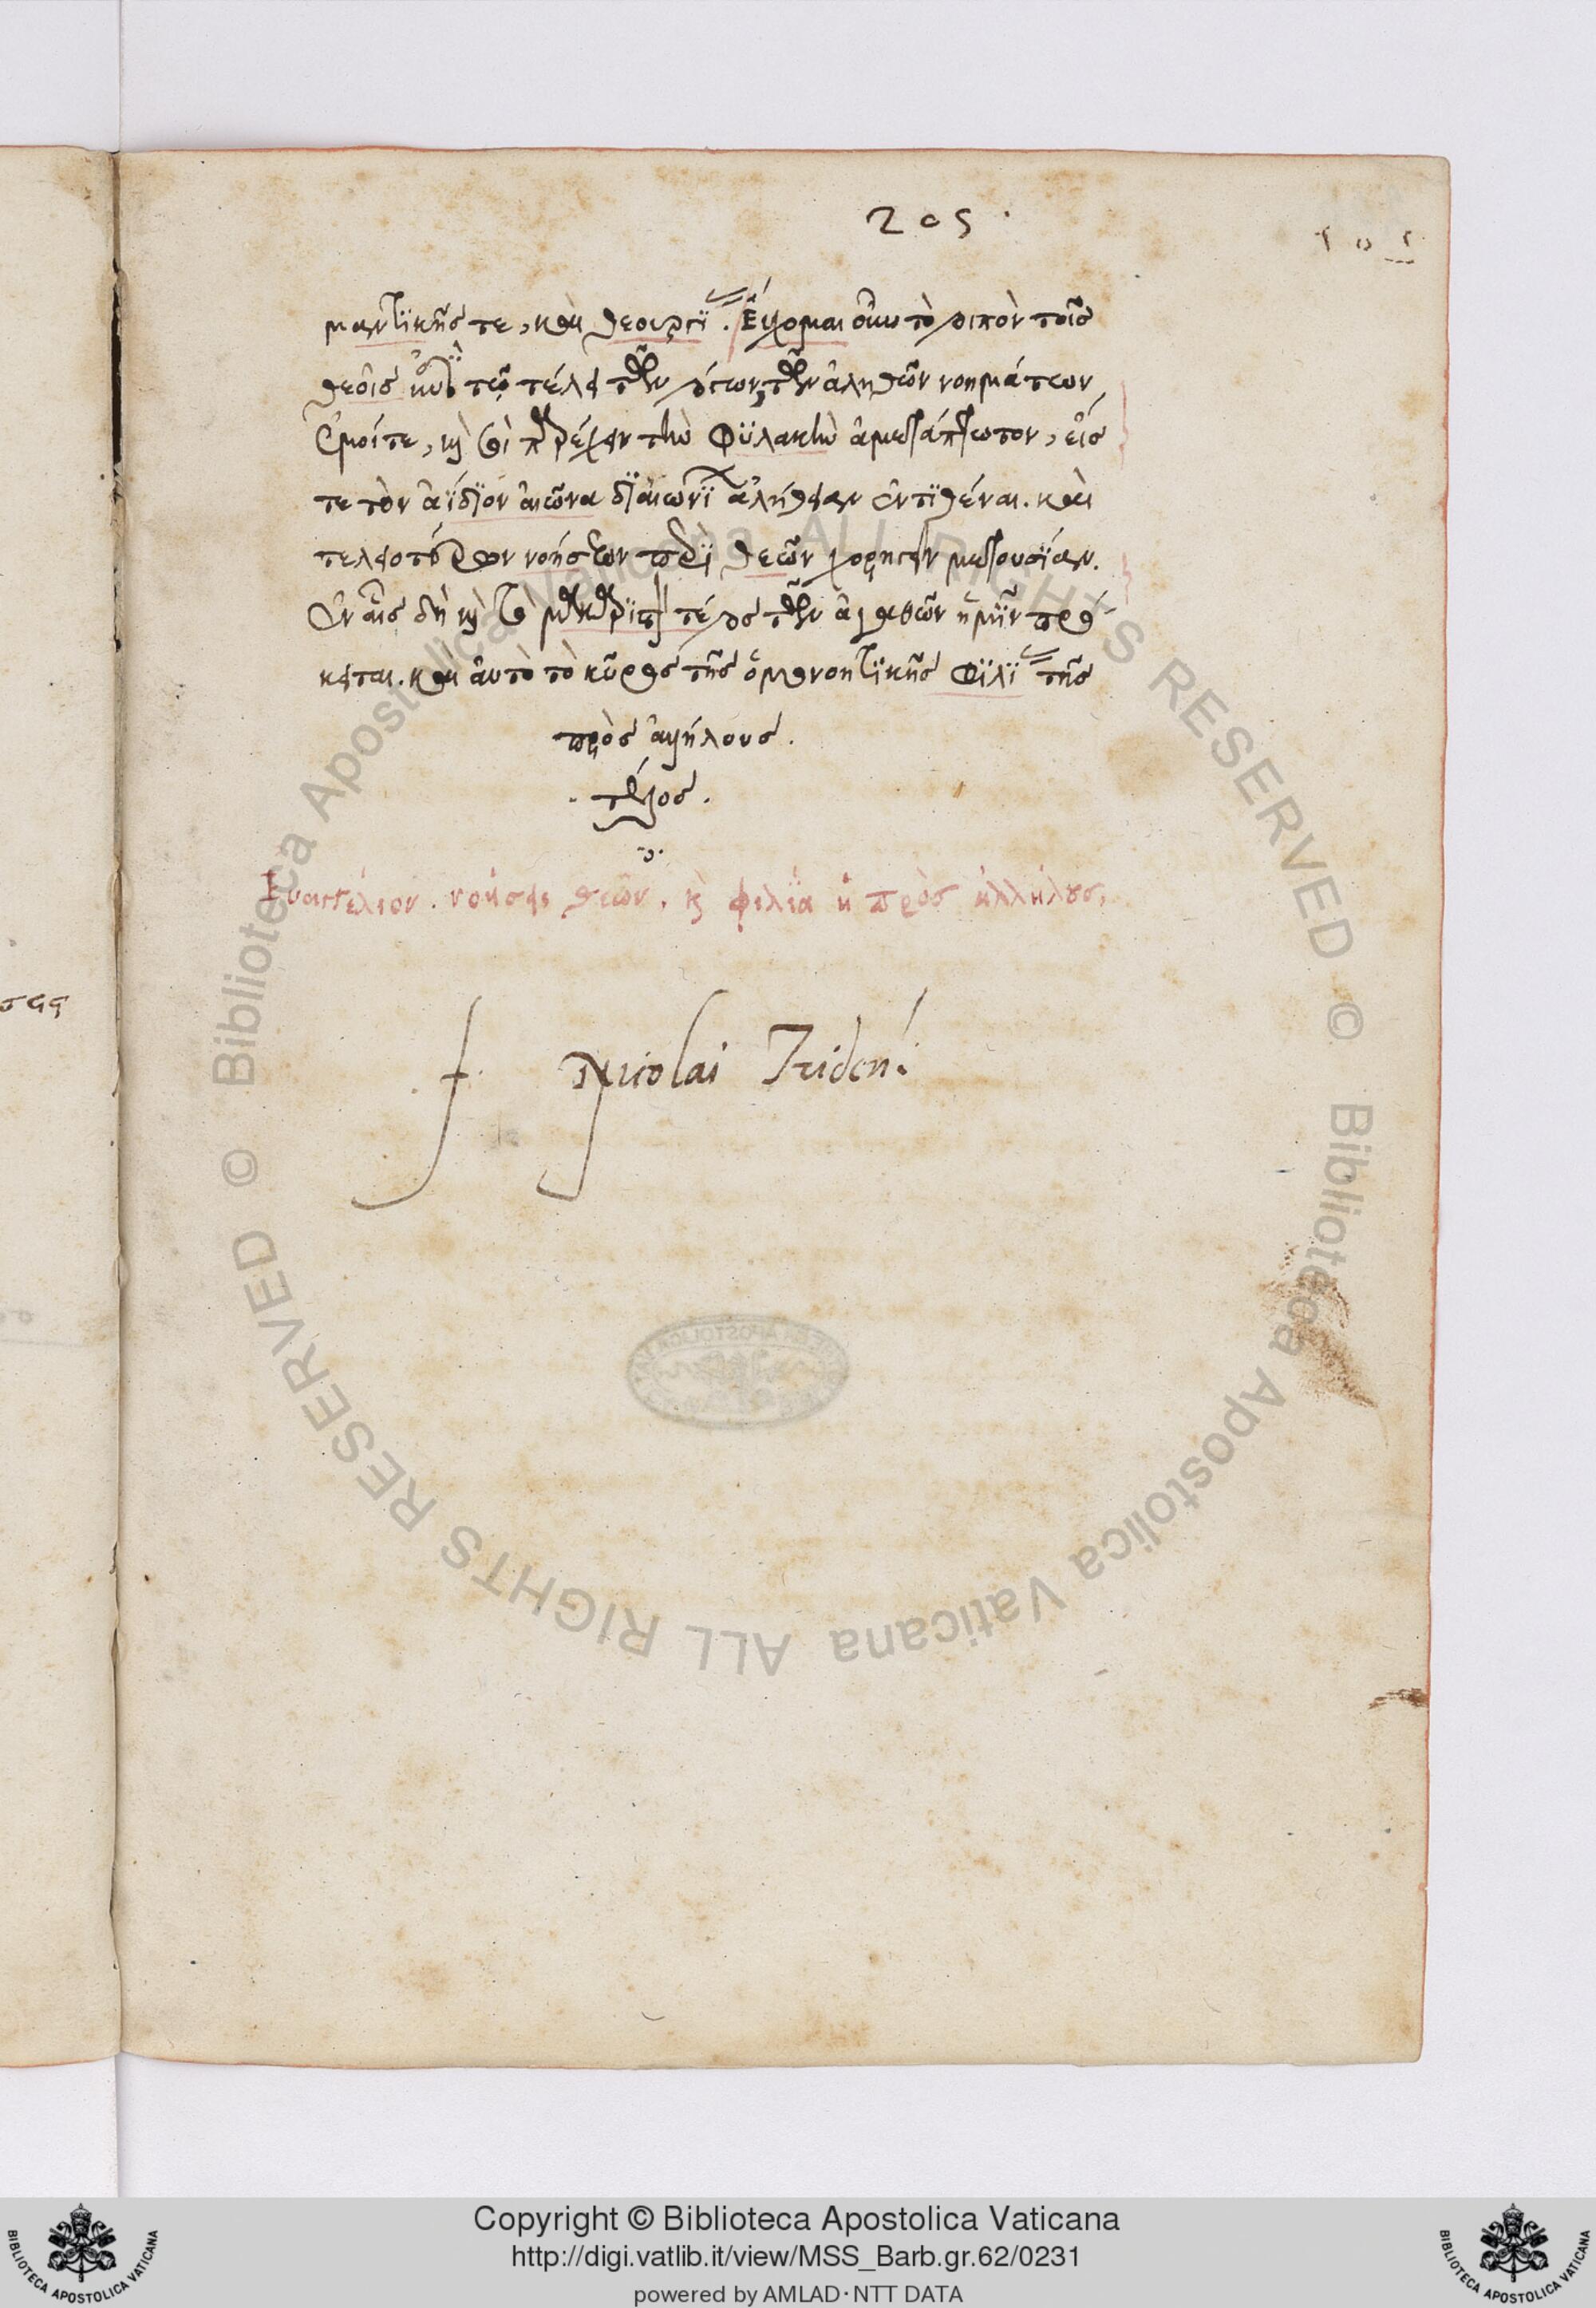 205.
μαντϊκῆς τε, καὶ θεουργϊας. Εὔχομαι οὖν τὸ λοιπὸν τοῖς
θεοῖς ἐπὶ τῷ τέλει τῶν λόγων, τῶν ἀληθῶν νοημάτων
ἐμοί τε, καὶ σοὶ παρέχειν τὴν φϋλακὴν ἀμετάπτωτον, εἴς
τε τὸν ἀΐδϊον αἰῶνα δϊαιωνϊας ἀλήθειαν ἐντϊθέναι. καὶ
τελειοτέρων νοήσεων περϊ θεῶν χορηγεῖν μετουσϊαν.
ἐν αἷς δὴ καὶ τὸ μακάρϊον τέλος τῶν ἀγαθῶν ἡμῖν πρό
κειται. καὶ αὐτὸ τὸ κῦρος τῆς ὁμονοητϊκῆς φϊλϊας τῆς
πρὸς ἀλλήλους.
. τέλος .
Ευαγγέλιον. νοήσει θεῶν. καὶ φιλϊα ἡ πρὸς ἀλλήλους.
f Nicolai Triden.
σqq
Copyright © Biblioteca Apostolica Vaticana
http://digi.vatlib.it/view/MSS_Barb.gr.62/0231
powered by AMLAD · NTT DATA
BIBLIOTECA APOSTOLICA VATICANA
BIBLIOTECA APOSTOLICA VATICANA
© Biblioteca Apostolica Vaticana ALL RIGHTS RESERVED © Biblioteca Apostolica Vaticana ALL RIGHTS RESERVED